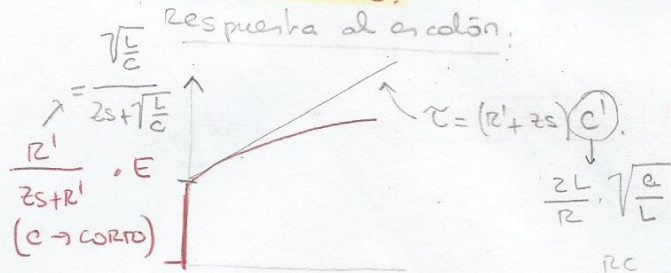 Respuesta al escalón:
= √(L/C) / (Zs + √(L/C))
R' / (Zs + R') . E
(C → CORTO)
τ = (R' + Zs) C'.
2L/R . √(C/L)
RC